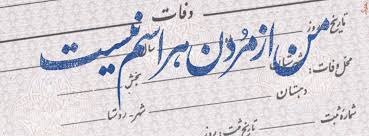 وفات
تاریخ
روز
من از مردن هراسم نیست
محل وفات:
بخش
دهستان
شهر - روستا
شماره ثبت
تاریخ ثبت: روز